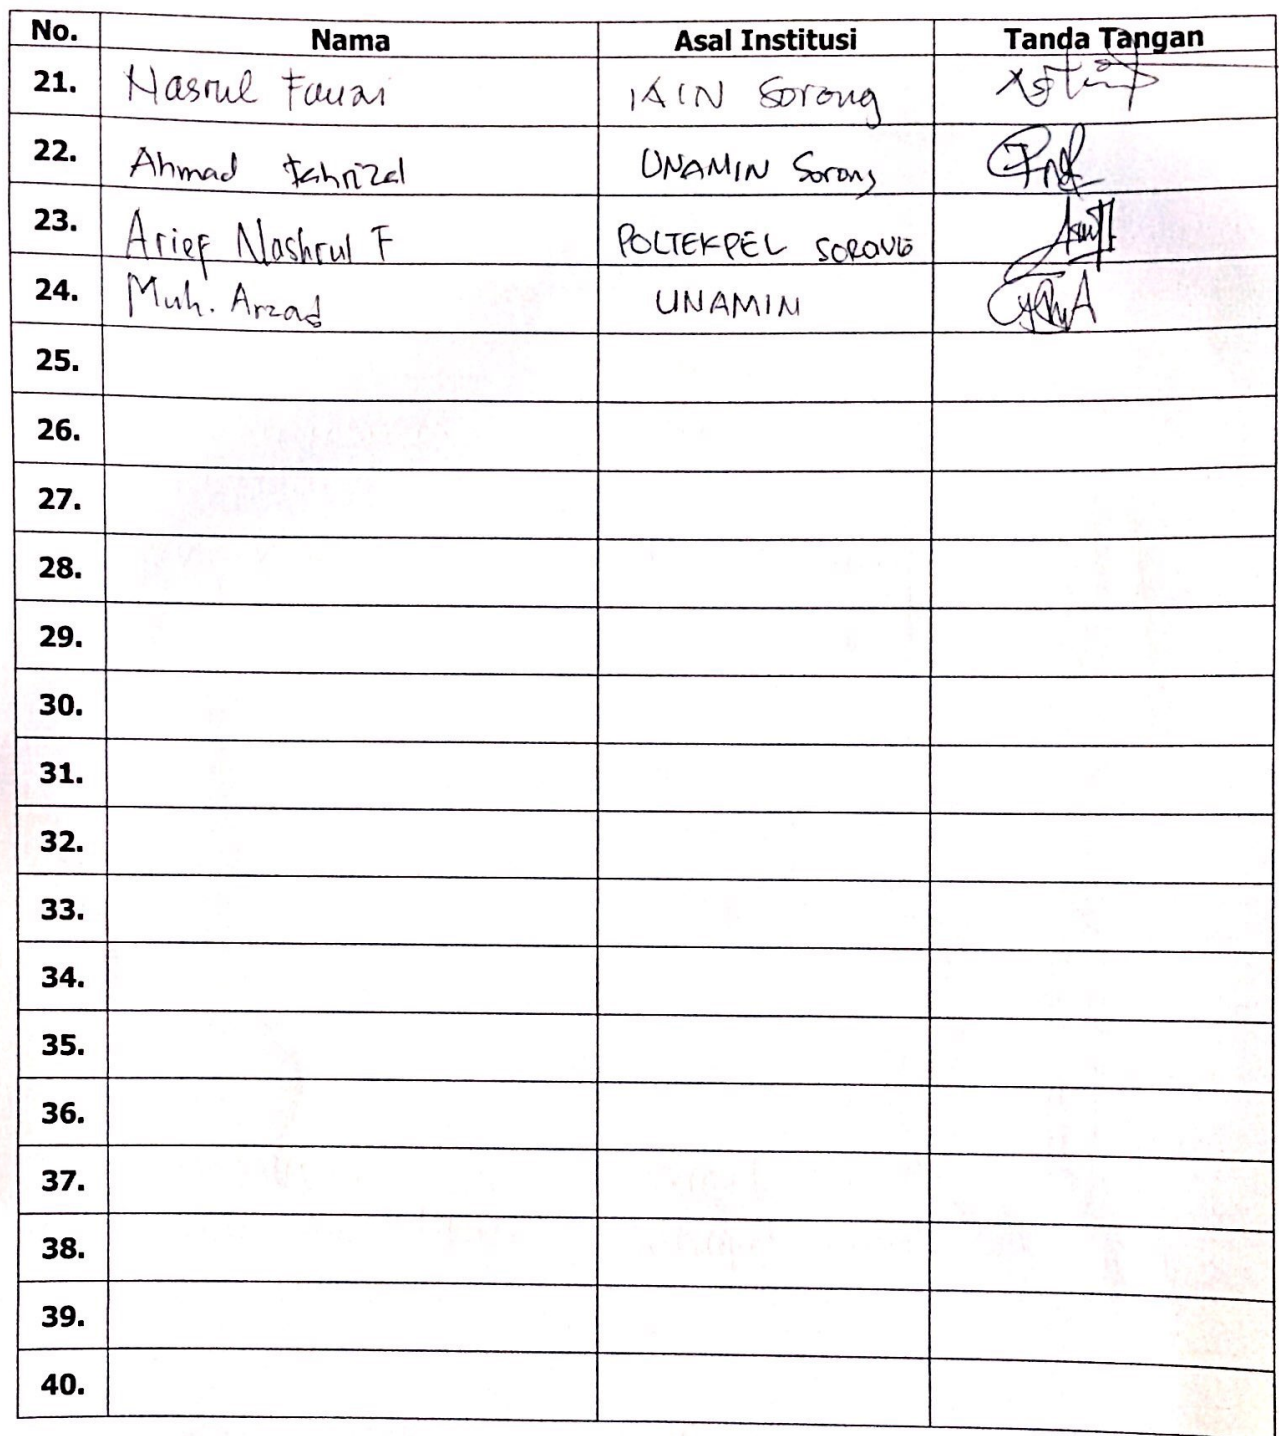 No. Nama Asal Institusi Tanda Tangan
21. Nasrul Fauzi IAIN Sorong
22. Ahmad Fahrizal UNAMIN Sorong
23. Arief Nashrul F POLTEKPEL SORONG
24. Muh. Arzad UNAMIN
25.
26.
27.
28.
29.
30.
31.
32.
33.
34.
35.
36.
37.
38.
39.
40.